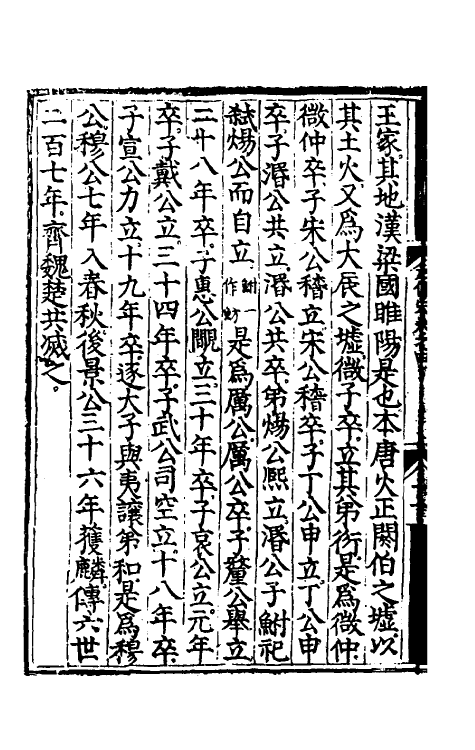 王家其地漢梁國睢陽是也本唐火正閼伯之墟以
其土火又爲大辰之墟微子卒立其弟衍是爲微仲
微仲卒子宋公稽立宋公稽卒子丁公申立丁公申
卒子湣公共立湣公共卒弟煬公熙立湣公子鮒祀
弒煬公而自立鮒一作魴是爲厲公厲公卒子釐公舉立
二十八年卒子惠公覵立三十年卒子哀公立元年
卒子戴公立三十四年卒子武公司空立十八年卒
子宣公力立十九年卒逐大子與夷讓弟和是爲穆
公穆公七年入春秋後景公三十六年獲麟傳六世
二百七年齊魏楚共滅之